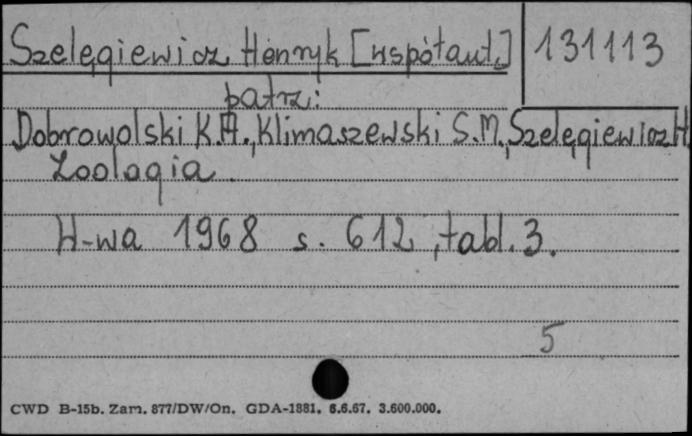 Szelęgiewicz Henryk [współaut.]
131113
patrz:
Dobrowolski K.A., Klimaszewski S.M., Szelęgiewicz H.
Zoologia.
W-wa 1968 s. 612, tabl. 3.
5
CWD B-15b. Zam. 877/DW/On. GDA-1881. 6.6.67. 3.600.000.